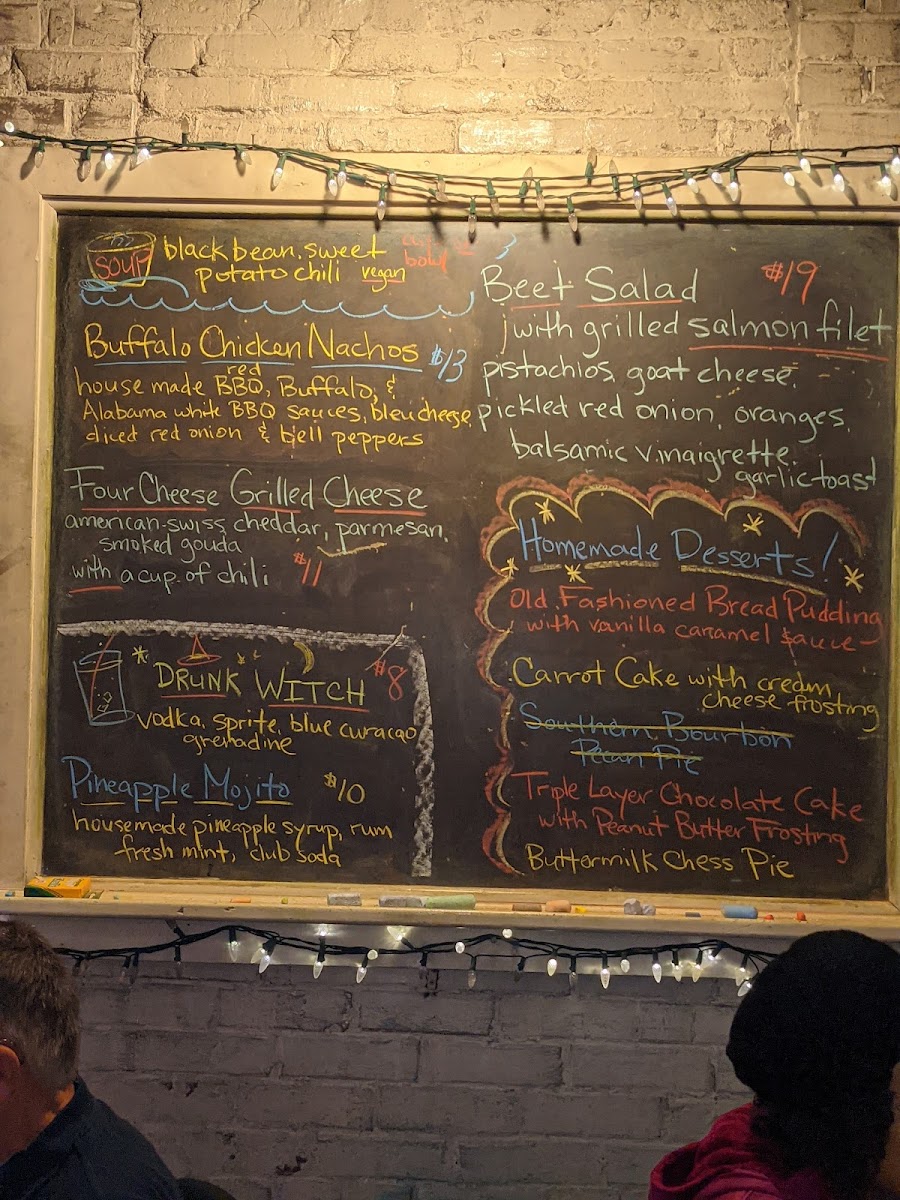 SOUP
black bean. sweet
potato chili vegan
bowl
Buffalo Chicken Nachos $13
red
house made BBQ, Buffalo, &
Alabama white BBQ sauces, bleu cheese,
diced red onion & bell peppers
Four Cheese Grilled Cheese
american-swiss, cheddar, parmesan,
smoked gouda
with a cup of chili $11
DRUNK WITCH $8
vodka, sprite, blue curacao
grenadine
Pineapple Mojito $10
housemade pineapple syrup, rum
fresh mint, club soda
Beet Salad $19
with grilled salmon filet
pistachios, goat cheese,
pickled red onion, oranges,
balsamic vinaigrette,
garlic toast
Homemade Desserts!
Old Fashioned Bread Pudding
with vanilla caramel sauce
Carrot Cake with cream
cheese frosting
Southern Bourbon
Pecan Pie
Triple Layer Chocolate Cake
with Peanut Butter Frosting
Buttermilk Chess Pie